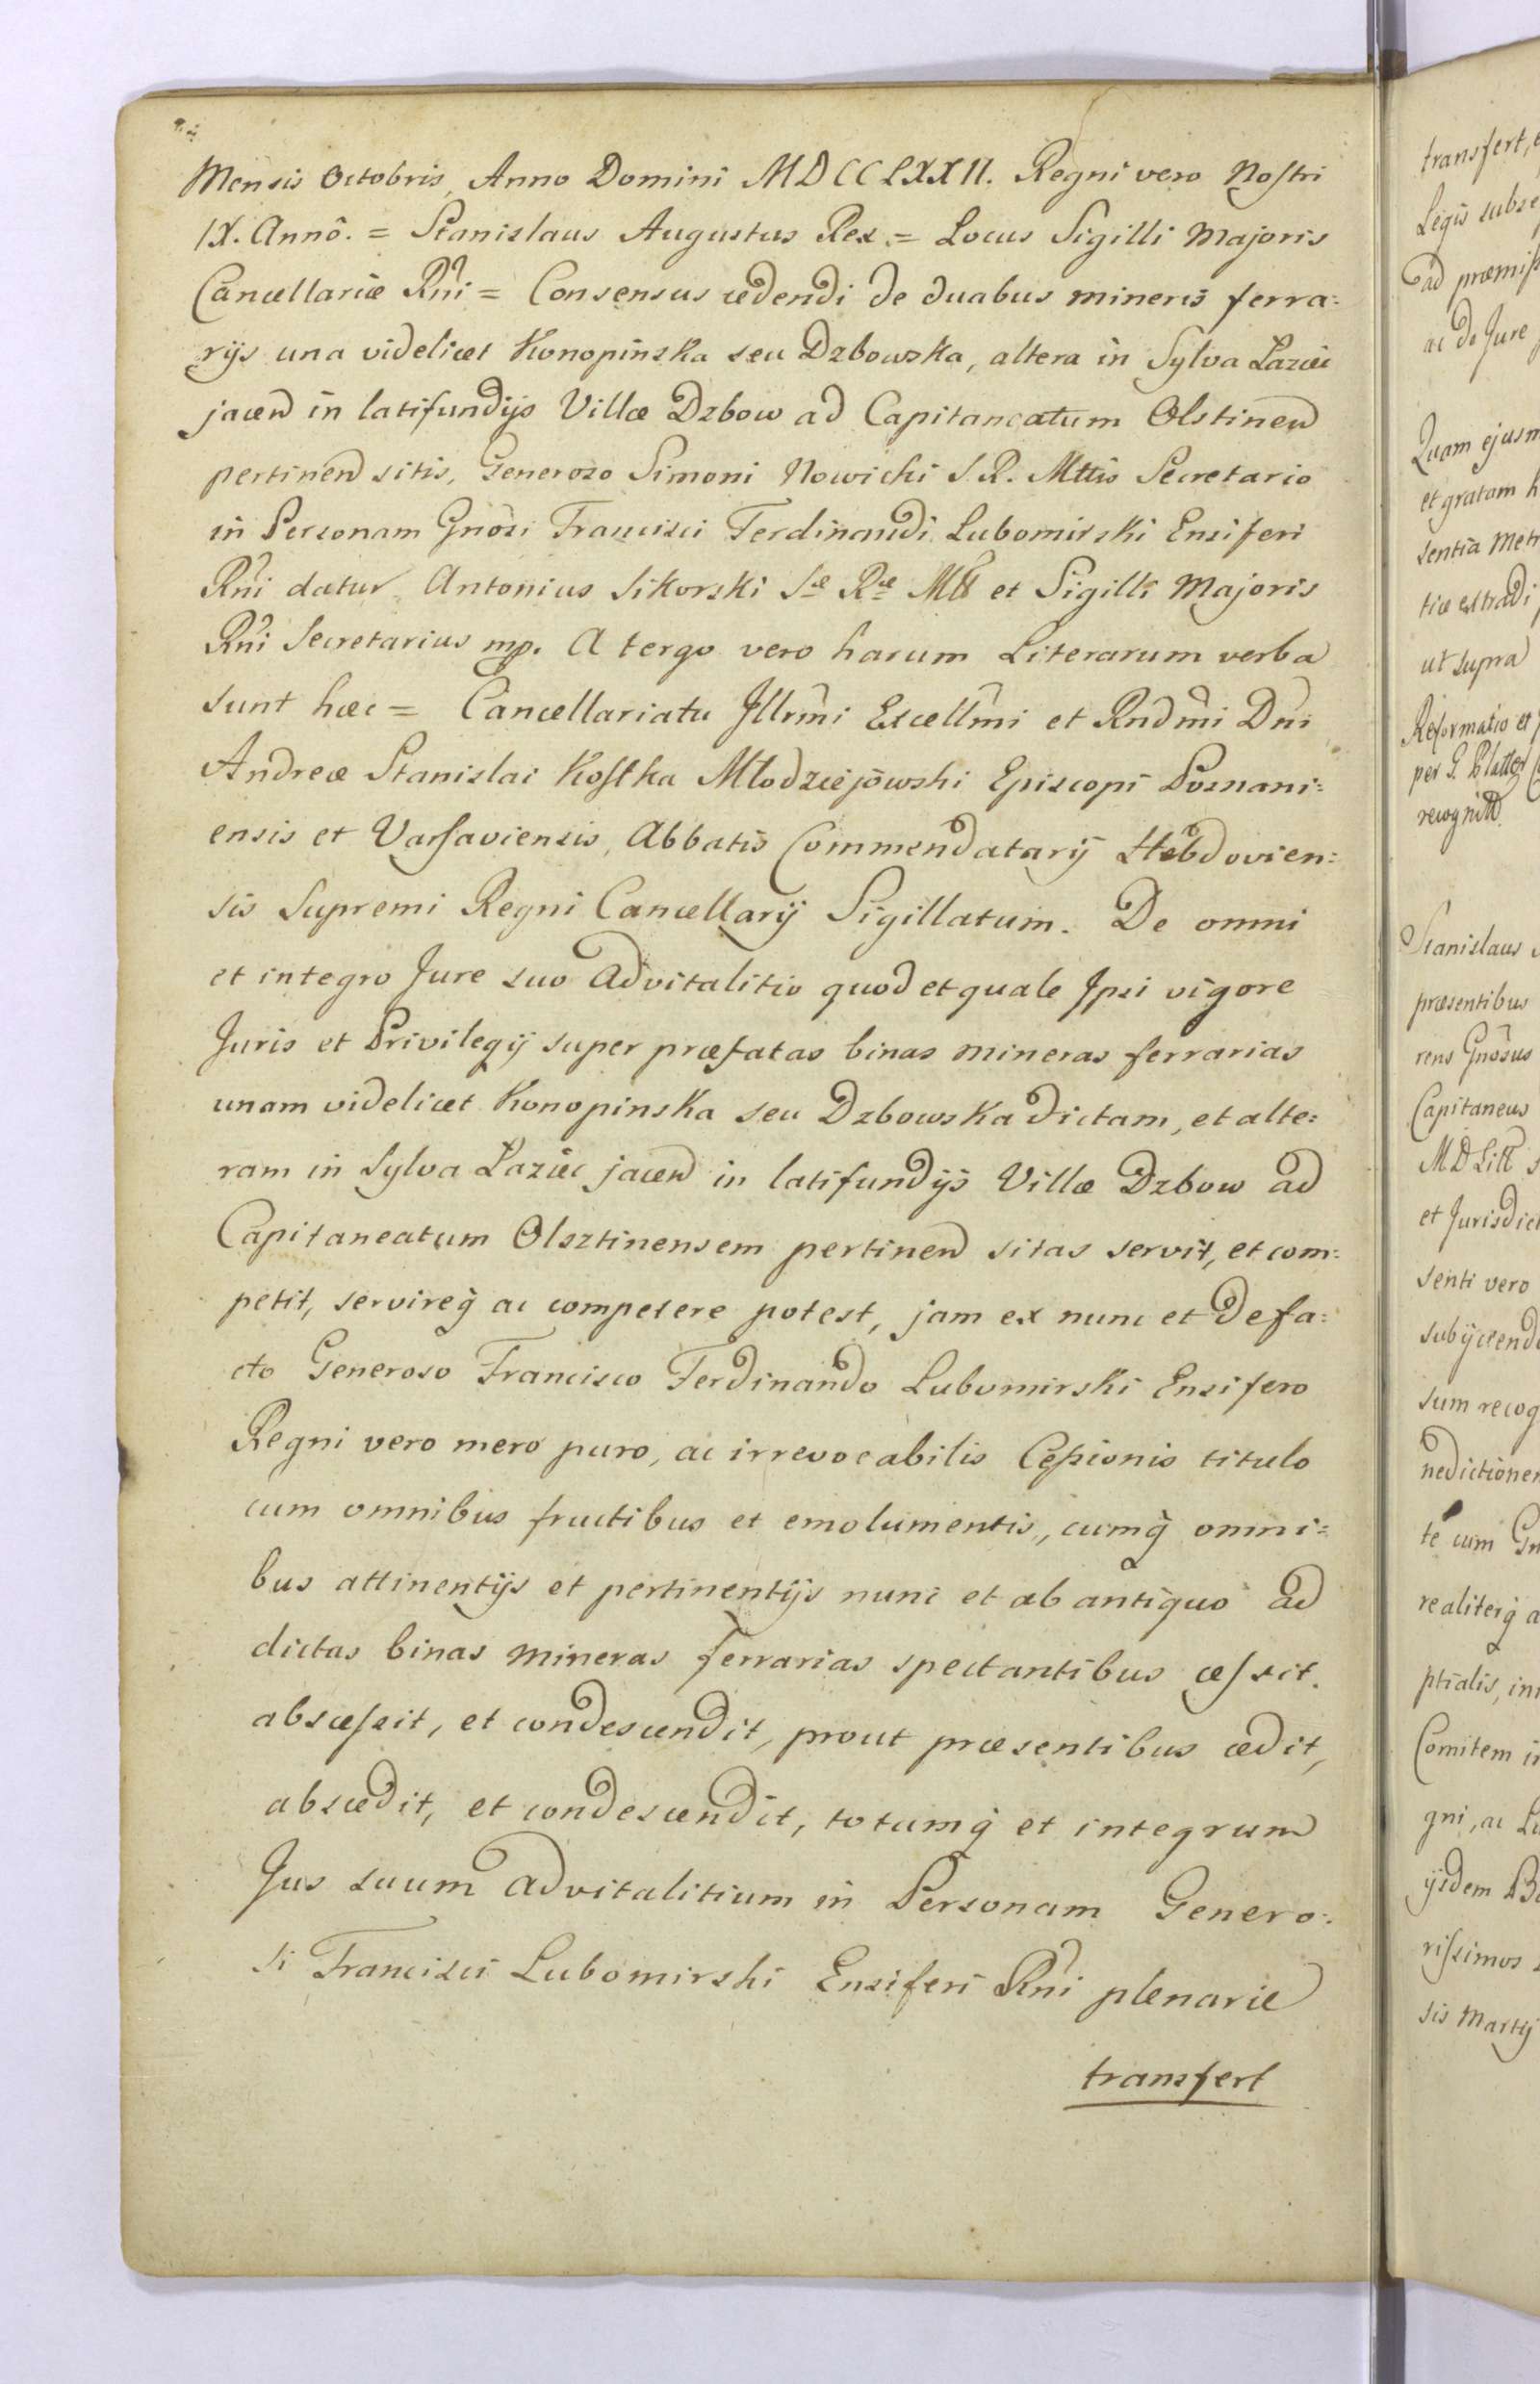 Mensis Octobris, Anno Domini MDCCLXXII. Regni vero Nostri
IX. Annô. = Stanislaus Augustus Rex = Locus Sigilli Majoris
Cancellariæ Rñi = Consensus cedendi de duabus mineris ferra=
rijs una videlicet Konopinska seu Dzbowska, altera in Sylva Łaziec
jacen in latifundijs Villæ Dzbow ad Capitaneatum Olstinen
pertinen sitis, Generoso Simoni Nowicki S. R. Mttis Secretario
in Personam Gnosi Francisci Ferdinandi Lubomirski Ensiferi
Rñi datur. Antonius Sikorski Sæ Ræ Mtt et Sigilli Majoris
Rñi Secretarius mp. A tergo vero harum Literarum verba
sunt hæc = Cancellariatu Jllrmi Excellmi et Rndmi Dñi
Andreæ Stanislai Kostka Młodziejowski Episcopi Posnani=
ensis et Varsaviensis, Abbatis Commendatarij Hebdovien=
sis Supremi Regni Cancellarij Sigillatum. De omni
et integro Jure suo Advitalitio quod et quale Jpsi vigore
Juris et Privilegij super præfatas binas mineras ferrarias
unam videlicet Konopinska seu Dzbowska dictam, et alte=
ram in Sylva Łaziec jacen in latifundijs Villæ Dzbow ad
Capitaneatum Olsztinensem pertinen sitas servit, et com=
petit, servireq̀ ac competere potest, jam ex nunc et de fa=
cto Generoso Francisco Ferdinando Lubomirski Ensifero
Regni vero mero puro, ac irrevocabilis Cessionis titulo
cum omnibus fructibus et emolumentis, cumq̀ omni=
bus attinentijs et pertinentijs nunc et ab antiquo ad
dictas binas mineras ferrarias spectantibus cessit.
abscessit, et condescendit, prout præsentibus cedit,
abscedit, et condescendit, totumq̀ et integrum
Jus suum advitalitium in Personam Genero=
si Francisci Lubomirski Ensiferi Rñi plenarie
transfert
transfert,
Legis subse
ad præmiss
ac de Jure
Quam ejusm
et gratam h
sentia Met
tiæ extradi
ut supra
Reformatio et
per G. Plater
recognitt.
Stanislaus
præsentibus
rens Gnosus
Capitaneus
et Jurisdict
senti vero
subijcendo
sum recog
nedictionem
te cum Gn
realiterq̀ a
ptialis, in
Comitem i
gni, ac Li
ijsdem B
rissimos
sis Martij